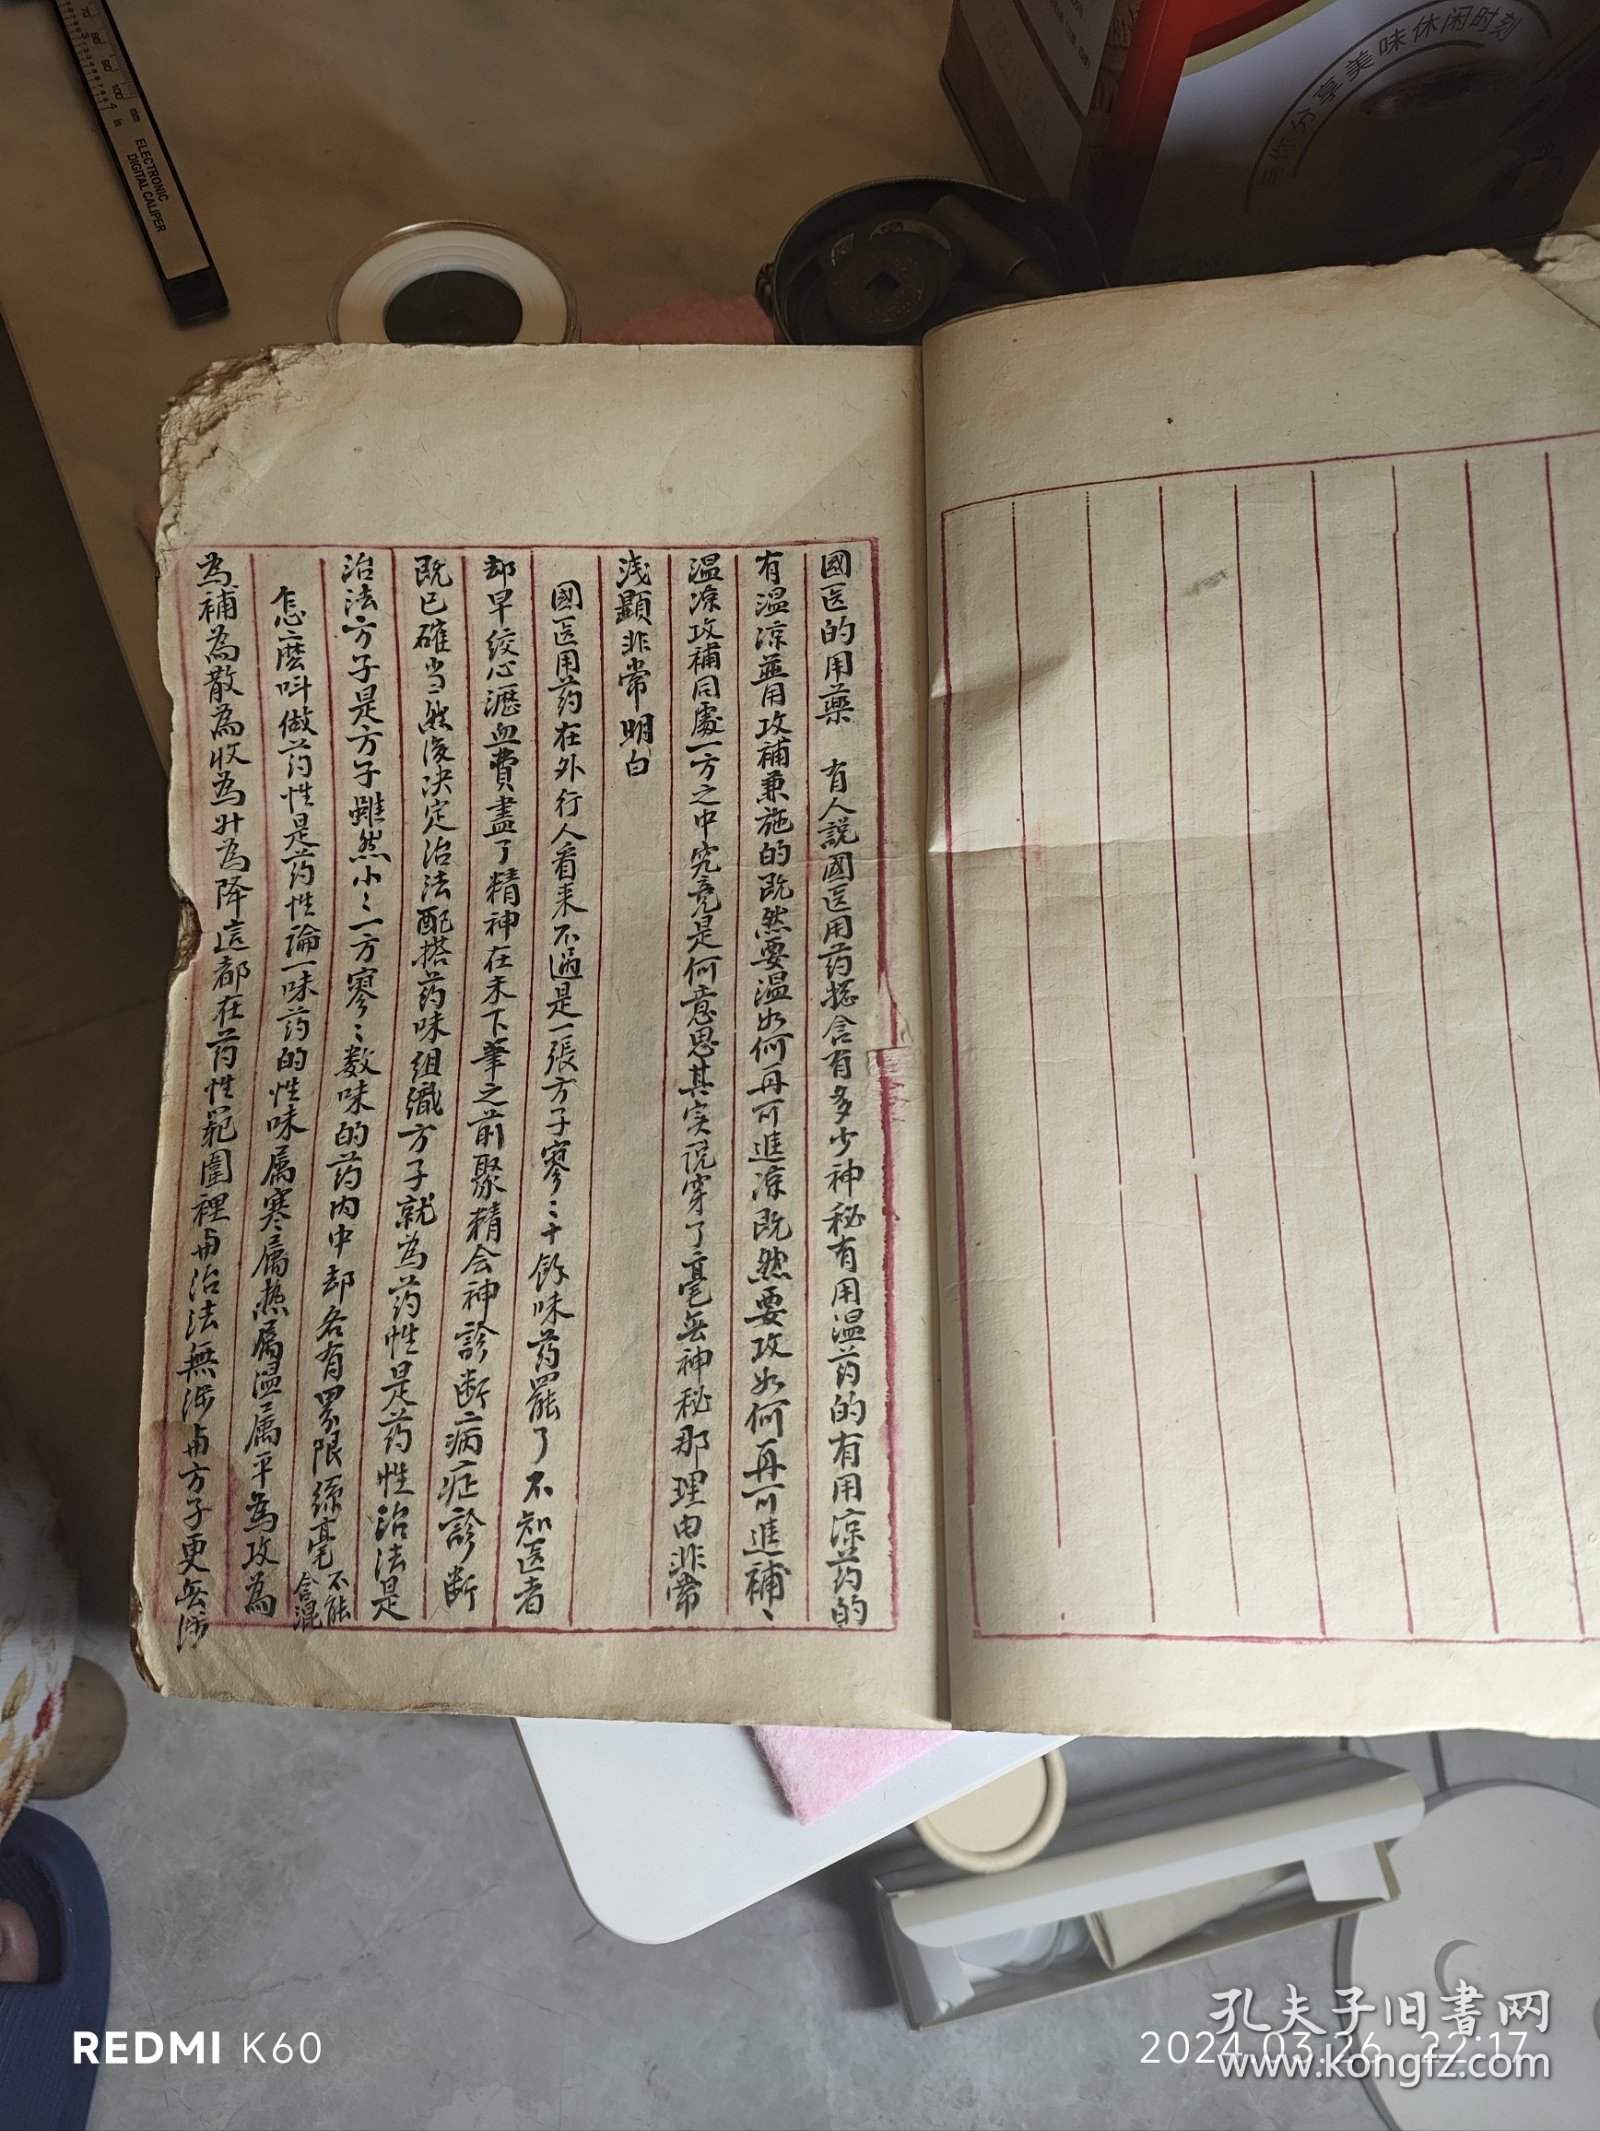 與你分享美味休闲时刻
70 80 90 100 mm
in
ELECTRONIC
DIGITAL CALIPER
國医的用藥 有人説國医用药揔含有多少神秘有用温药的有用凉药的
有温凉並用攻補兼施的既然要温如何再可進凉既然要攻如何再可進補、
温凉攻補同處一方之中究竟是何意思其实说穿了毫無神秘那理由非常
浅顕非常明白
國医用药在外行人看来不過是一張方子寥〻十餘味药罷了不知医者
却早絞心瀝血費盡了精神在未下筆之前聚精会神診断病症診断
既已確当〻然後决定治法配搭药味組織方子就為药性是药性治法是
治法方子是方子雖然小〻一方寥〻数味的药内中却各有界限絲毫不能含混
怎麽叫做药性是药性論一味药的性味属寒属热属温属平為攻為
為補為散為收為升為降這都在药性範圍裡與治法無涉與方子更無涉
REDMI K60
2024.03.26 22:17
孔夫子旧書网
www.kongfz.com